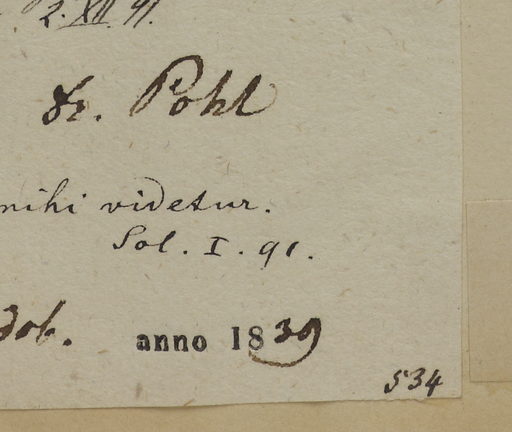 2. XII. 91.
Dr. Pohl
mihi videtur.
Sol. I. 91.
dob. anno 1839
534